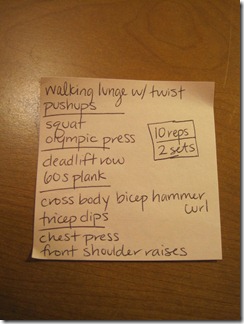 walking lunge w/ twist
pushups
squat
olympic press
10 reps
2 sets
deadlift row
60s plank
cross body bicep hammer
curl
tricep dips
chest press
front shoulder raises